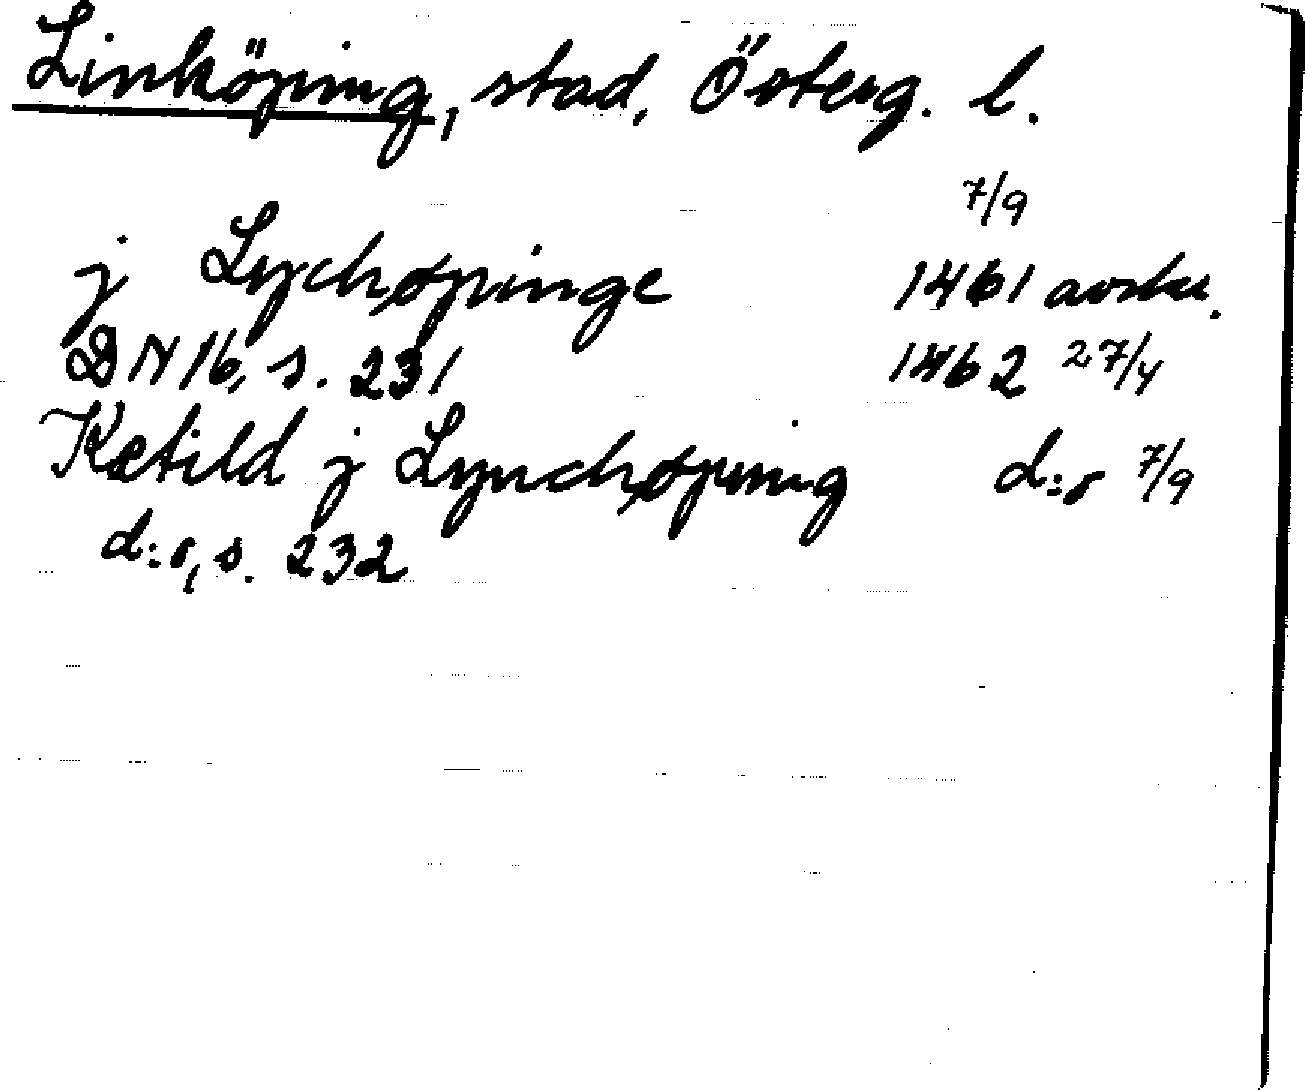 Linköping, stad, Österg. l.
7/9
j Lychøpinge 1461 avskr.
DN 16, s. 231 1462 27/4
Kætild j Lynchøping d:o 7/9
d:o, s. 232